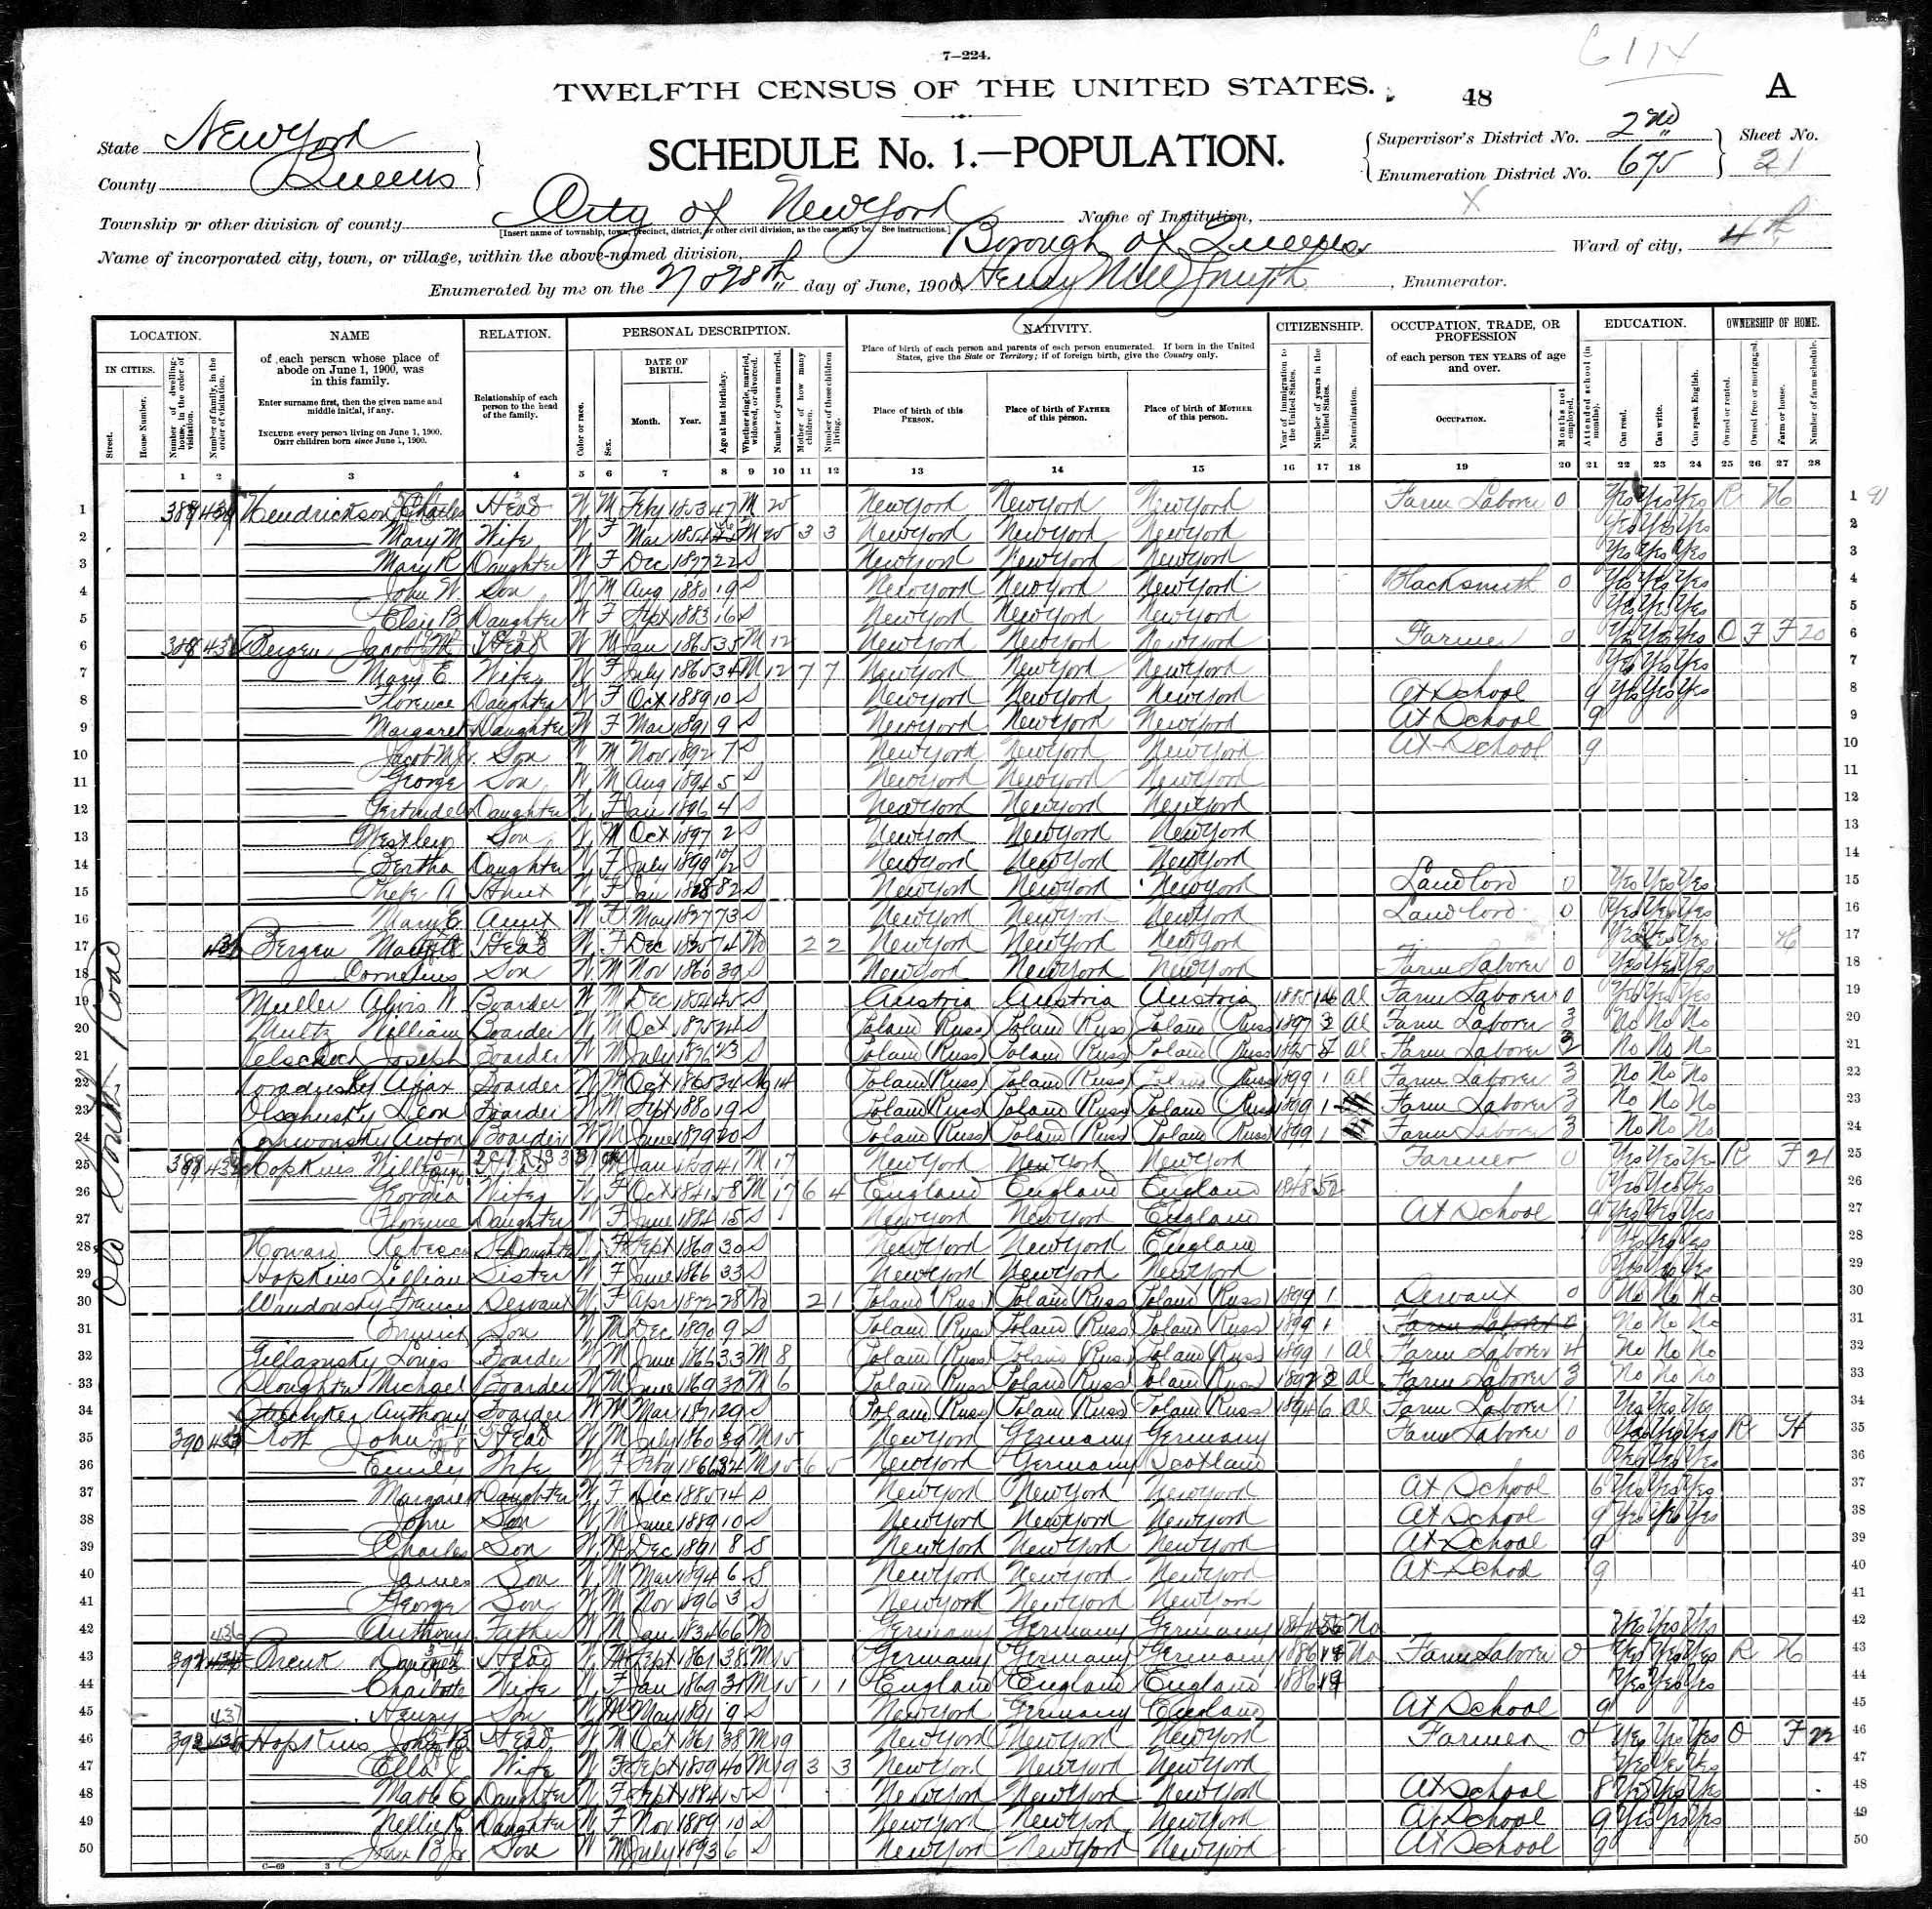 7—224.
TWELFTH CENSUS OF THE UNITED STATES.
48
A
State New York
County Queens
SCHEDULE No. 1.—POPULATION.
Supervisor's District No. 2nd
Enumeration District No. 675
Sheet No.
21
Township or other division of county City of New York
[Insert name of township, town, precinct, district, or other civil division, as the case may be. See instructions.]
Name of Institution, X
Name of incorporated city, town, or village, within the above-named division, Borough of Queens
Ward of city, 4th
Enumerated by me on the 27 & 28th day of June, 1900, Enumerator.
LOCATION.
IN CITIES.
Street.
House Number.
Number of dwelling-house, in the order of visitation.
Number of family, in the order of visitation.
NAME
of each person whose place of abode on June 1, 1900, was in this family.
Enter surname first, then the given name and middle initial, if any.
INCLUDE every person living on June 1, 1900.
OMIT children born since June 1, 1900.
RELATION.
Relationship of each person to the head of the family.
PERSONAL DESCRIPTION.
Color or race.
Sex.
DATE OF BIRTH.
Month. Year.
Age at last birthday.
Whether single, married, widowed, or divorced.
Number of years married.
Mother of how many children.
Number of these children living.
NATIVITY.
Place of birth of each person and parents of each person enumerated. If born in the United States, give the State or Territory; if of foreign birth, give the Country only.
Place of birth of this PERSON.
Place of birth of FATHER of this person.
Place of birth of MOTHER of this person.
CITIZENSHIP.
Year of immigration to the United States.
Number of years in the United States.
Naturalization.
OCCUPATION, TRADE, OR PROFESSION
of each person TEN YEARS of age and over.
OCCUPATION.
Months not employed.
EDUCATION.
Attended school (in months).
Can read.
Can write.
Can speak English.
OWNERSHIP OF HOME.
Owned or rented.
Owned free or mortgaged.
Farm or house.
Number of farm schedule.
1 2 3 4 5 6 7 8 9 10 11 12 13 14 15 16 17 18 19 20 21 22 23 24 25 26 27 28
Old South Road
1 Hendrickson Charles Head W M Feby 1853 47 M 25 New York New York New York Farm Laborer 0 Yes Yes Yes R H 1
2 Mary M Wife W F Mar 1854 M 25 3 3 New York New York New York Yes Yes Yes 2
3 Mary R Daughter W F Dec 1877 22 S New York New York New York Yes Yes Yes 3
4 John W Son W M Aug 1880 19 S New York New York New York Blacksmith 0 Yes Yes Yes 4
5 Elsie B Daughter W F Sept 1883 16 S New York New York New York Yes Yes Yes 5
6 Bergen Jacob M Head W M Jan 1865 35 M 12 New York New York New York Farmer 0 Yes Yes Yes O F F 20 6
7 Mary E Wife W F July 1865 34 M 12 7 7 New York New York New York Yes Yes Yes 7
8 Florence Daughter W F Oct 1889 10 S New York New York New York At School 9 Yes Yes Yes 8
9 Margaret Daughter W F Mar 1891 9 S New York New York New York At School 9 9
10 Jacob M Jr Son W M Nov 1892 7 S New York New York New York At School 9 10
11 George Son W M Aug 1894 5 S New York New York New York 11
12 Gertrude Daughter W F Jan 1896 4 S New York New York New York 12
13 Westley Son W M Oct 1897 2 S New York New York New York 13
14 Bertha Daughter W F July 1899 10/12 S New York New York New York 14
15 Phebe A Aunt W F Jan 1818 82 S New York New York New York Landlord 0 Yes Yes Yes 15
16 Mary E Aunt W F May 1827 73 S New York New York New York Landlord 0 Yes Yes Yes 16
17 Bergen Head W F Dec 1825 74 Wd 2 2 New York New York New York Yes Yes Yes H 17
18 Cornelius Son W M Nov 1860 39 S New York New York New York Farm Laborer 0 Yes Yes Yes 18
19 Muller Alvis W Boarder W M Dec 1854 45 S Austria Austria Austria 1885 Al Farm Laborer 0 Yes Yes Yes 19
20 Multz William Boarder W M Oct 1875 24 S Poland (Russ) Poland (Russ) Poland (Russ) 1897 Al Farm Laborer 3 No No No 20
21 Joseph Boarder W M July 1876 23 S Poland (Russ) Poland (Russ) Poland (Russ) 1895 Al Farm Laborer No No No 21
22 Ajax Boarder W M Oct 1865 34 M 14 Poland (Russ) Poland (Russ) Poland (Russ) 1899 1 Al Farm Laborer 3 No No No 22
23 Olschusky Leon Boarder W M Sept 1880 19 S Poland (Russ) Poland (Russ) Poland (Russ) 1899 1 Farm Laborer 3 No No No 23
24 Anton Boarder W M June 1879 20 S Poland (Russ) Poland (Russ) Poland (Russ) 1899 1 Farm Laborer 3 No No No 24
25 Hopkins William Head W M Jan 1859 41 M 17 New York New York New York Farmer 0 Yes Yes Yes R F 21 25
26 Georgia Wife W F Oct 1841 58 M 17 6 4 England England England 1848 52 Yes Yes Yes 26
27 Florence Daughter W F June 1884 15 S New York New York England At School 9 Yes Yes Yes 27
28 Howard Rebecca S-Daughter W F Sept 1869 30 S New York New York England Yes Yes Yes 28
29 Hopkins Lillian Sister W F June 1866 33 S New York New York New York Yes Yes Yes 29
30 Servant W F Apr 1872 28 Wd 2 1 Poland (Russ) Poland (Russ) Poland (Russ) 1899 1 Servant 0 No No No 30
31 Son W M Dec 1890 9 S Poland (Russ) Poland (Russ) Poland (Russ) 1899 1 Farm Laborer No No No 31
32 Louis Boarder W M June 1866 33 M 8 Poland (Russ) Poland (Russ) Poland (Russ) 1899 1 Al Farm Laborer 4 No No No 32
33 Michael Boarder W M June 1869 30 M 6 Poland (Russ) Poland (Russ) Poland (Russ) 1897 Al Farm Laborer 3 No No No 33
34 Anthony Boarder W M Mar 1871 29 S Poland (Russ) Poland (Russ) Poland (Russ) 1894 6 Al Farm Laborer 1 Yes Yes Yes 34
35 390 John Head W M July 1860 39 M 15 New York Germany Germany Farm Laborer 0 Yes Yes Yes R H 35
36 Emily Wife W F Feby 1866 34 M 15 6 5 New York Germany Scotland Yes Yes Yes 36
37 Margaret Daughter W F Dec 1885 14 S New York New York New York At School 6 Yes Yes Yes 37
38 John Son W M June 1889 10 S New York New York New York At School 9 Yes Yes Yes 38
39 Charles Son W M Dec 1891 8 S New York New York New York At School 9 39
40 James Son W M Mar 1894 6 S New York New York New York At School 9 40
41 George Son W M Nov 1896 3 S New York New York New York 41
42 436 Anthony Father W M Jan 1834 66 Wd Germany Germany Germany Na Yes Yes Yes 42
43 Head W M Sept 1861 38 M 15 Germany Germany Germany 1886 Na Farm Laborer 0 Yes Yes Yes R H 43
44 Charlotte Wife W F Jan 1869 31 M 15 1 1 England England England 1886 Yes Yes Yes 44
45 437 Henry Son W M May 1891 9 S New York Germany England At School 9 45
46 392 Hopkins John B Head W M Oct 1861 38 M 19 New York New York New York Farmer 0 Yes Yes Yes O F 22 46
47 Ella J Wife W F Sept 1859 40 M 19 3 3 New York New York New York Yes Yes Yes 47
48 Mable E Daughter W F Sept 1884 15 S New York New York New York At School 8 Yes Yes Yes 48
49 Nellie R Daughter W F Nov 1889 10 S New York New York New York At School 9 Yes Yes Yes 49
50 John B Jr Son W M July 1893 6 S New York New York New York At School 9 50
C—69 3